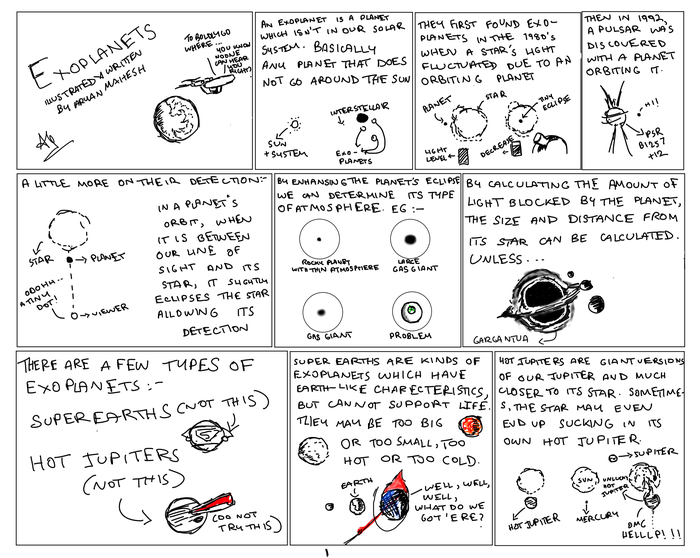 EXOPLANETS
ILLUSTRATED & WRITTEN
BY ARYAN MAHESH
TO BOLDLY GO
WHERE...
YOU KNOW
NO ONE
CAN HEAR
YOU
RIGHT?
AN EXOPLANET IS A PLANET
WHICH ISN'T IN OUR SOLAR
SYSTEM. BASICALLY
ANY PLANET THAT DOES
NOT GO AROUND THE SUN
INTERSTELLAR
SUN
+ SYSTEM
EXO-
PLANETS
THEY FIRST FOUND EXO-
PLANETS IN THE 1980'S
WHEN A STAR'S LIGHT
FLUCTUATED DUE TO AN
ORBITING PLANET
PLANET
STAR
TINY
ECLIPSE
LIGHT
LEVEL
DECREASE
THEN IN 1992,
A PULSAR WAS
DISCOVERED
WITH A PLANET
ORBITING IT.
HI!
PSR
B1257
+12
A LITTLE MORE ON THEIR DETECTION:-
STAR
PLANET
OOOHH..
A TINY
DOT!
VIEWER
IN A PLANET'S
ORBIT, WHEN
IT IS BETWEEN
OUR LINE OF
SIGHT AND ITS
STAR, IT SLIGHTLY
ECLIPSES THE STAR
ALLOWING ITS
DETECTION
BY ENHANSING THE PLANET'S ECLIPSE
WE CAN DETERMINE ITS TYPE
OF ATMOSPHERE. EG :-
ROCKY PLANET
WITH THIN ATMOSPHERE
LARGE
GAS GIANT
GAS GIANT
PROBLEM
BY CALCULATING THE AMOUNT OF
LIGHT BLOCKED BY THE PLANET,
THE SIZE AND DISTANCE FROM
ITS STAR CAN BE CALCULATED.
UNLESS...
GARGANTUA
THERE ARE A FEW TYPES OF
EXOPLANETS:-
SUPER EARTHS (NOT THIS)
HOT JUPITERS
(NOT THIS)
(DO NOT
TRY THIS)
SUPER EARTHS ARE KINDS OF
EXOPLANETS WHICH HAVE
EARTH-LIKE CHARECTERISTICS,
BUT CANNOT SUPPORT LIFE.
THEY MAY BE TOO BIG
OR TOO SMALL, TOO
HOT OR TOO COLD.
EARTH
WELL, WELL,
WELL,
WHAT DO WE
GOT 'ERE?
HOT JUPITERS ARE GIANT VERSIONS
OF OUR JUPITER AND MUCH
CLOSER TO ITS STAR. SOMETIME-
S, THE STAR MAY EVEN
END UP SUCKING IN ITS
OWN HOT JUPITER.
JUPITER
SUN
UNLUCKY
HOT
JUPITER
HOT JUPITER
MERCURY
OMG
HELLLP!!!
1